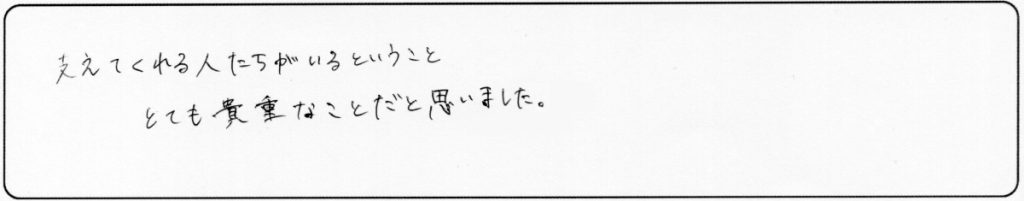 支えてくれる人たちがいるということ
とても貴重なことだと思いました。